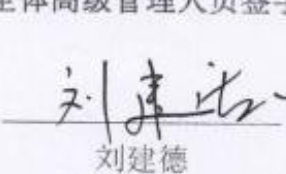 全体高级管理人员签字
刘建德
刘建德